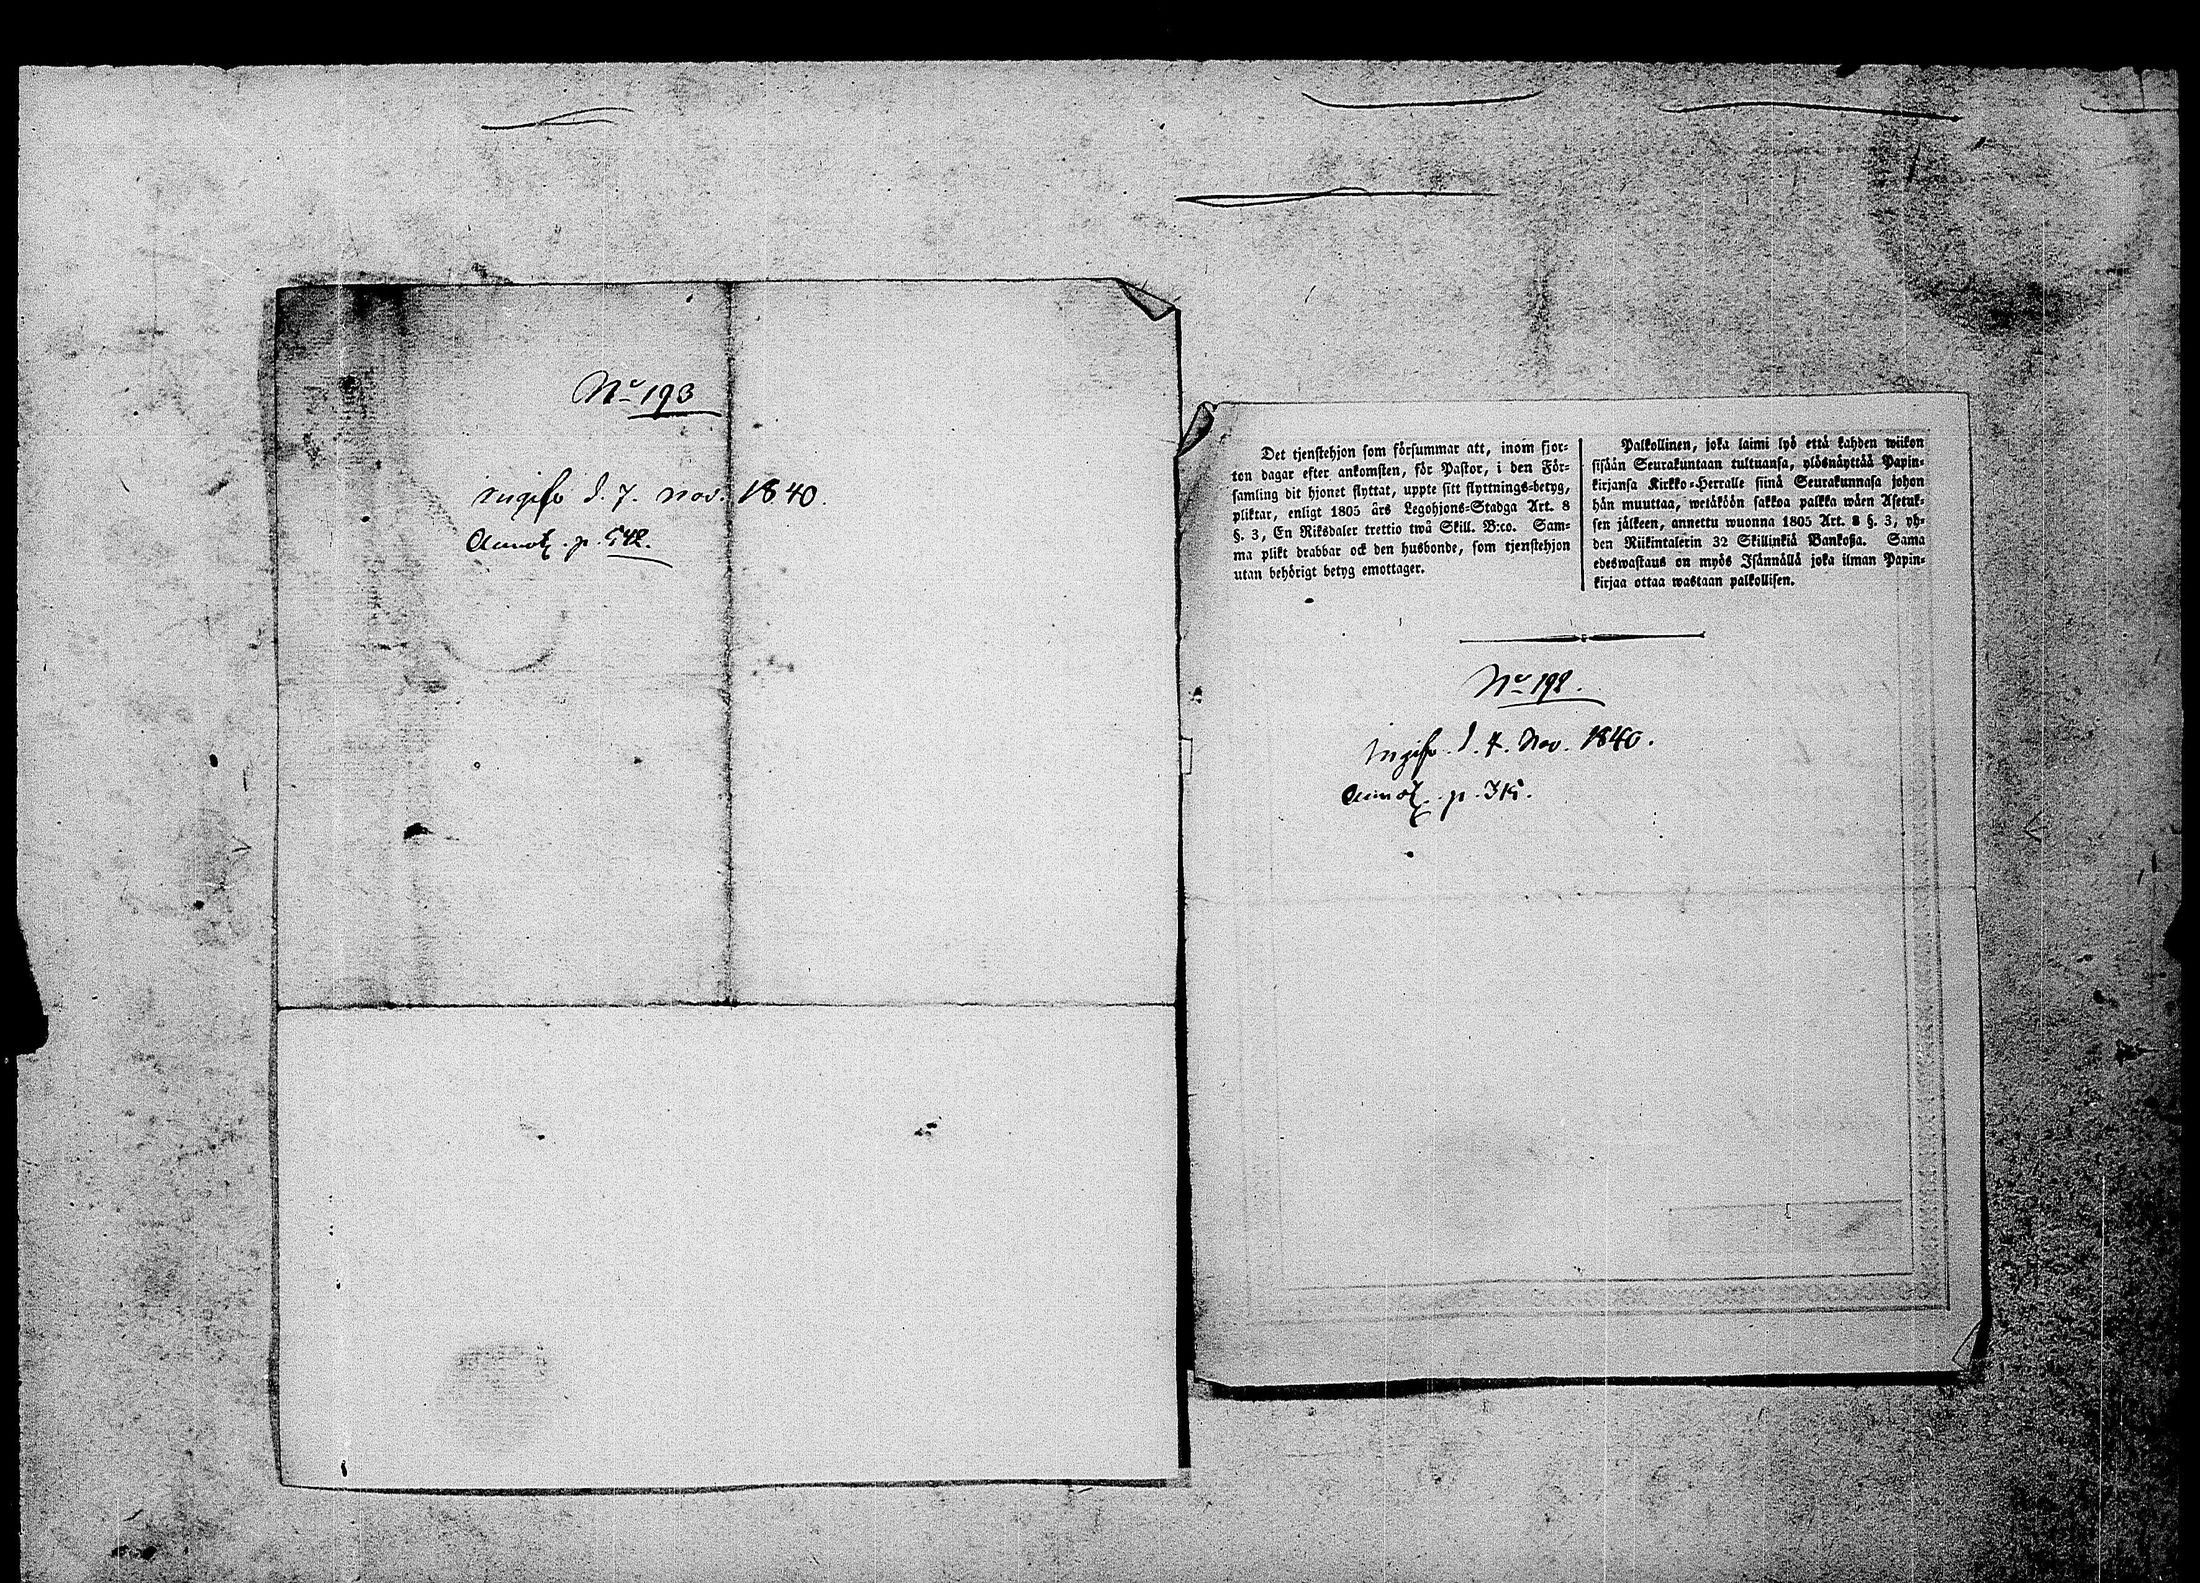 No 193
ingifv d. 7. nov. 1840.
Annot. p. 542.
Det tjenstehjon som försummar att, inom fjor-
ton dagar efter ankomsten, för Pastor, i den För-
samling dit hjonet flyttat, uppte sitt flyttnings-betyg,
pliktar, enligt 1805 års Legohjons-Stadga Art. 8
§. 3, En Riksdaler trettio twå Skill. B:co. Sam-
ma plikt drabbar ock den husbonde, som tjenstehjon
utan behörigt betyg emottager.
Palkollinen, joka laimi lyö että kahden wiikon
sisään Seurakuntaan tultuansa, ylösnäyttää Papin-
kirjansa Kirkko-Herralle siinä Seurakunnasa johon
hän muuttaa, wetäköön sakkoa palkka wäen Asetuk-
sen jälkeen, annettu wuonna 1805 Art. 8 §. 3, yh-
den Riikintalerin 32 Skillinkiä Bankoßa. Sama
edeswastaus on myös Isännällä joka ilman Papin-
kirjaa ottaa wastaan palkollisen.
No 192.
Ingifv. d. 7. Nov. 1840.
Annot. p. 315.